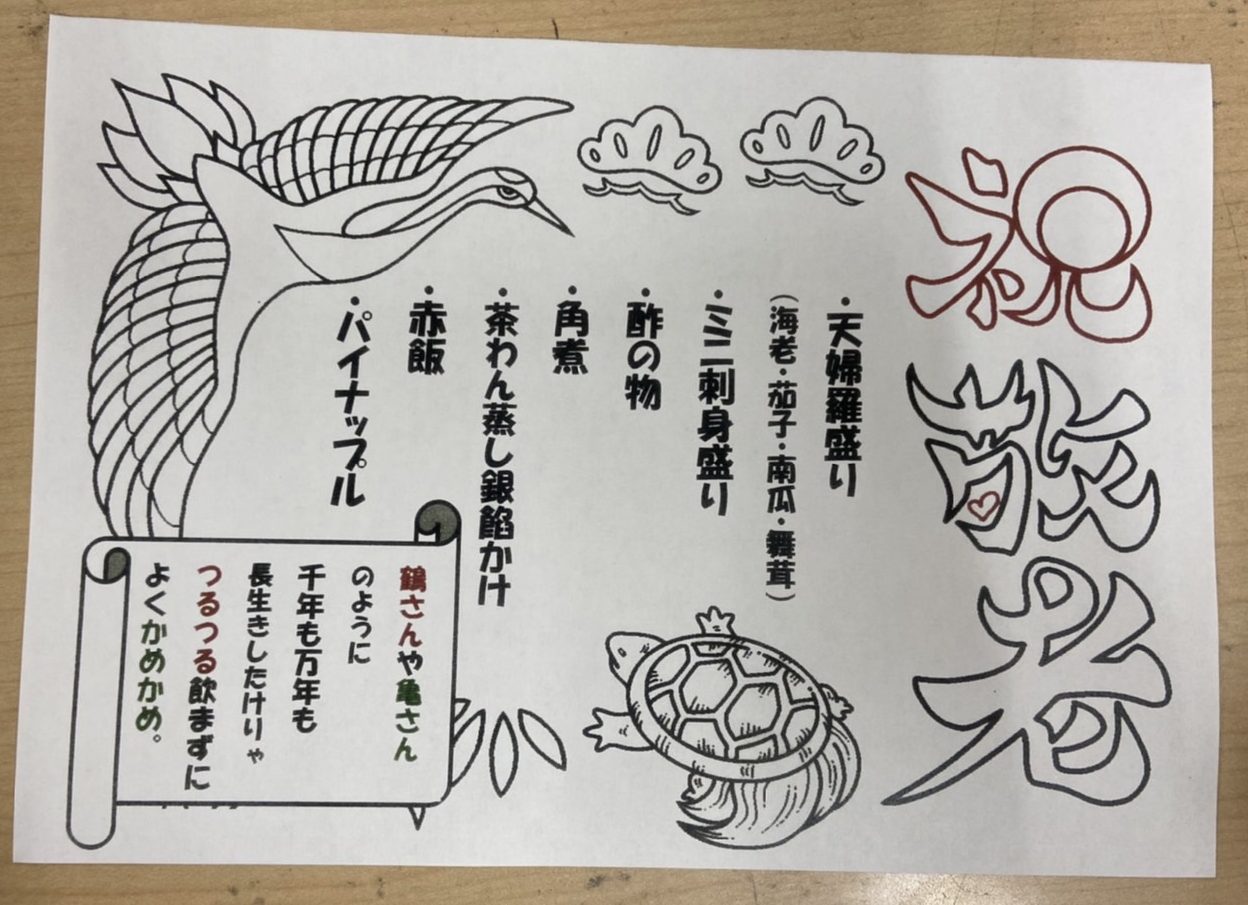 祝敬老
・天婦羅盛り
（海老・茄子・南瓜・舞茸）
・ミニ刺身盛り
・酢の物
・角煮
・茶わん蒸し銀餡かけ
・赤飯
・パイナップル
鶴さんや亀さん
のように
千年も万年も
長生きしたけりゃ
つるつる飲まずに
よくかめかめ。